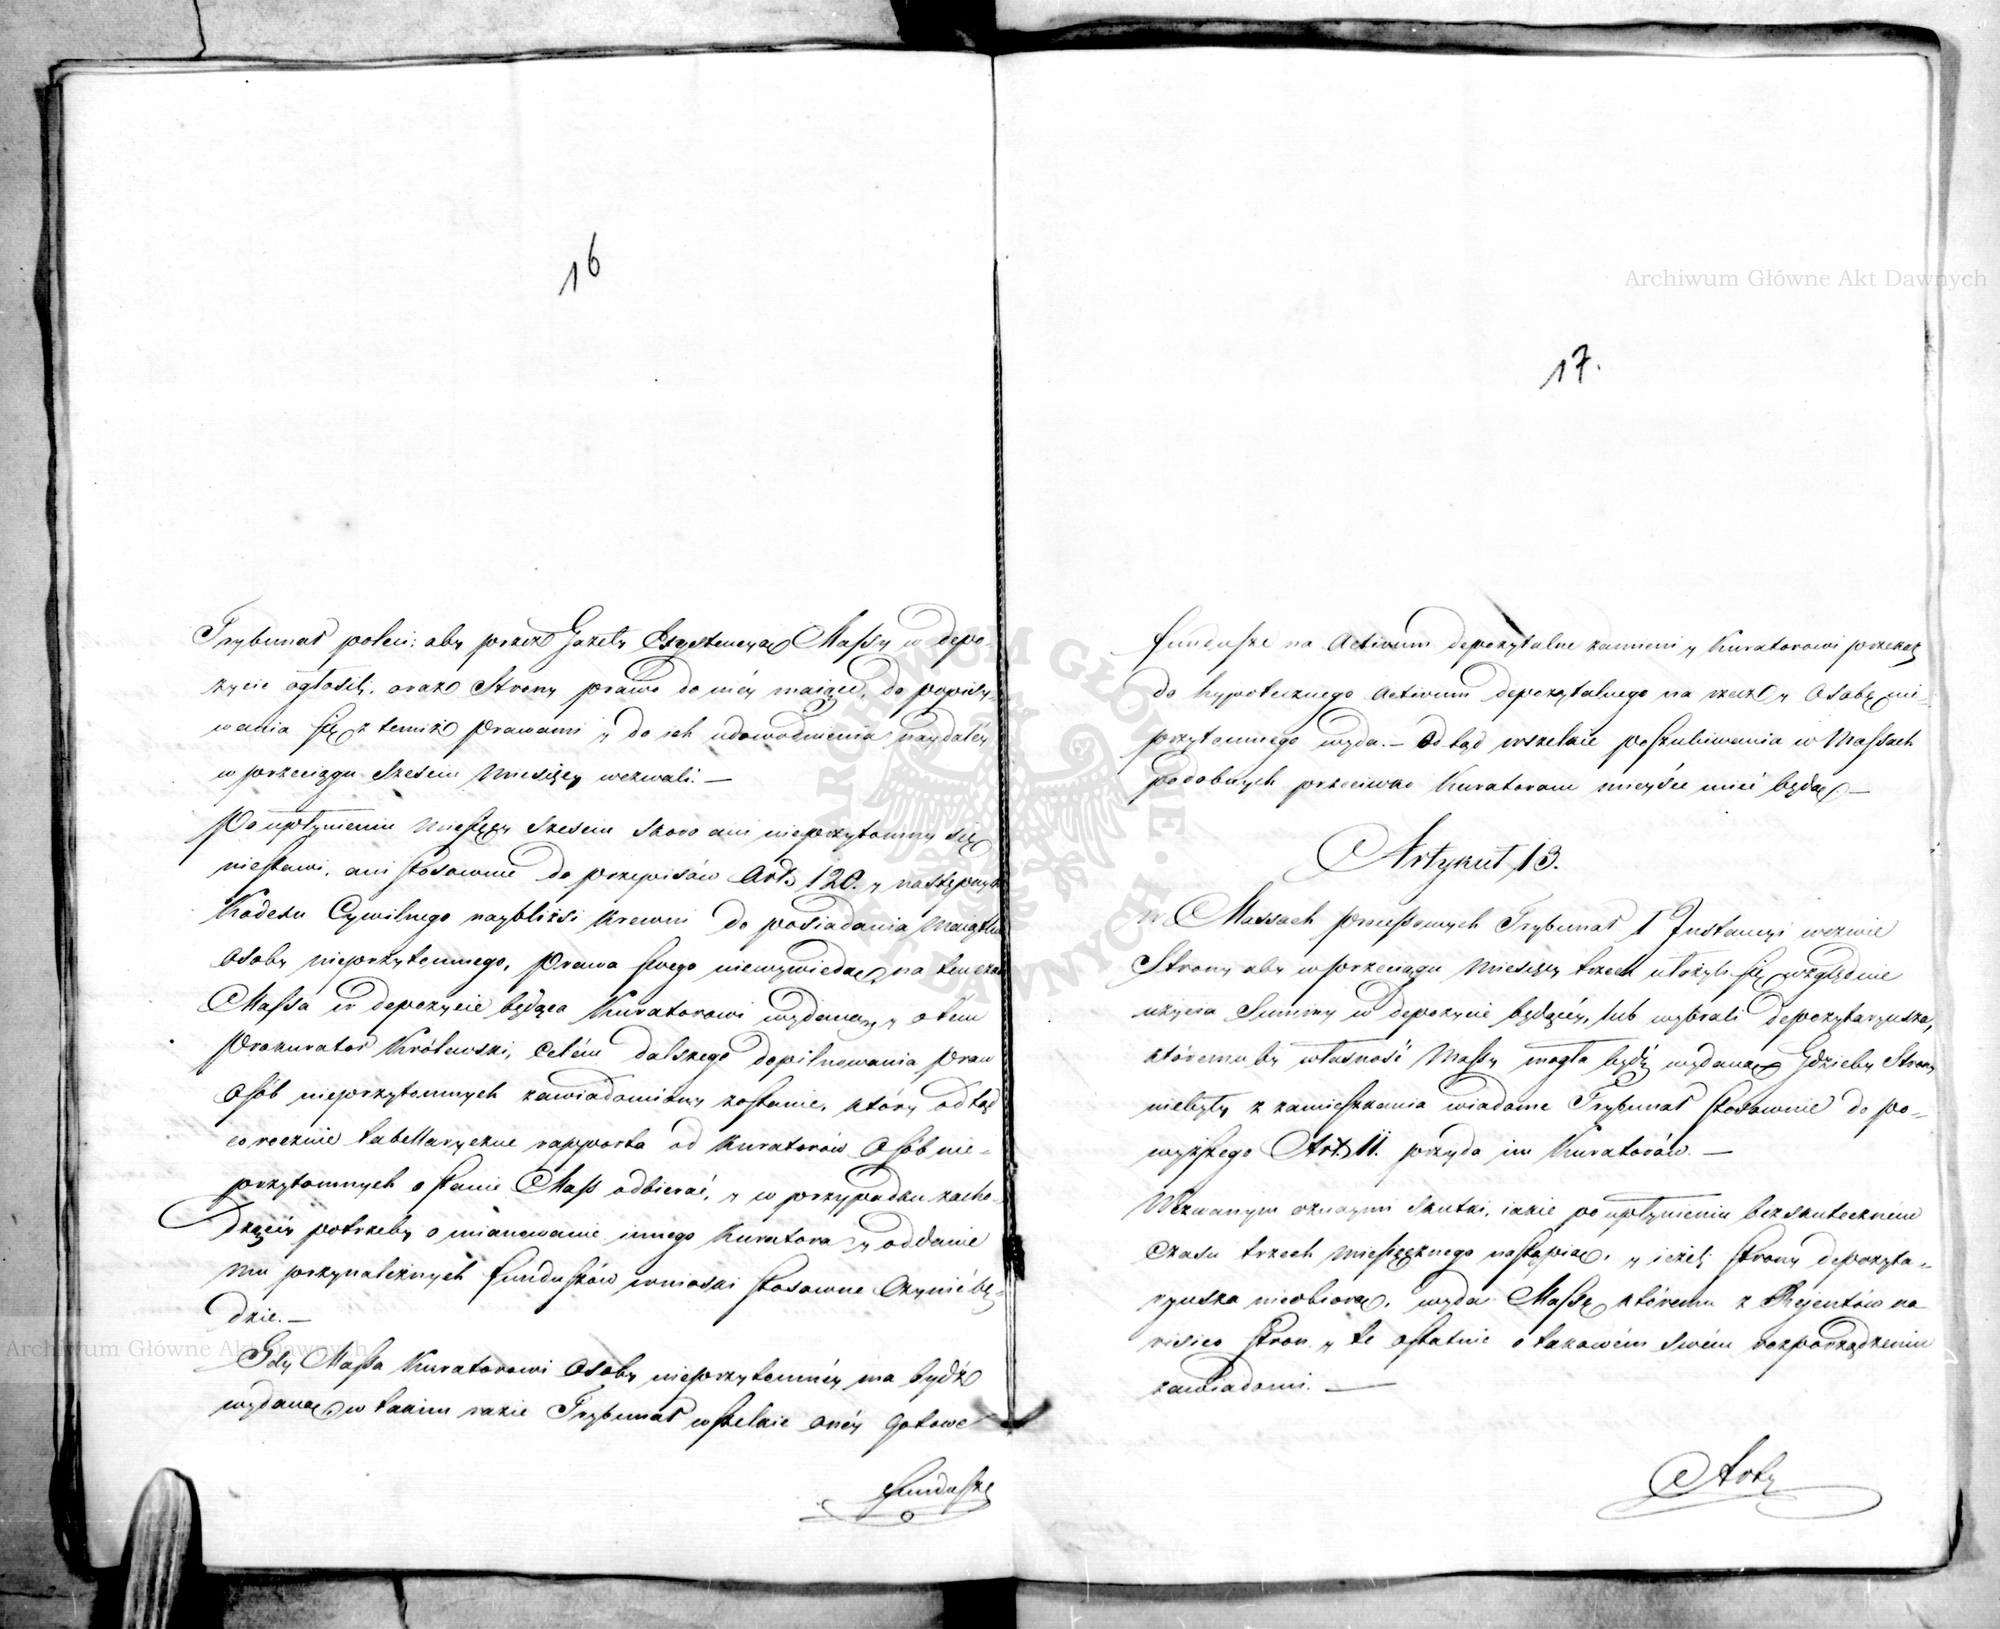 16
Trybunał poleci: aby przez Gazety Exystencyą Massy w depo-
zycie ogłosili, oraz Strony prawo do niéy maiące, do popisy-
wania się z temiż Prawami y do ich udowodnienia naydaléy
w przeciągu sześciu Miesięcy wezwali. —
Po upłynieniu Miesięcy sześciu skoro ani nieprzytomny się
niestawi, ani stosownie do przepisów Art. 120. y następnych
Kodexu Cywilnego naybliżsi krewni do posiadania Maiątku
Osoby nieprzytomnego, Prawa swego niewywiedą, na tenczas
Massa w depozycie będąca Kuratorowi wydaną, y o tém
Prokurator Królewski, celém dalszego dopilnowania Praw
Osób nieprzytomnych zawiadomiony zostanie, który odtąd
corocznie tabellaryczne rapporta od Kuratorów Osób nie-
przytomnych o stanie Mass odbierać, y w przypadku zacho-
dzącéy potrzeby o mianowanie innego Kuratora y oddanie
mu przynależnych funduszów wnioski stosowne czynić bę-
dzie. —
Gdy Massa Kuratorowi Osoby nieprzytomnéy ma bydź
wydaną, w takim razie Trybunał wszelkie onéy gotowe
fundusze
17.
fundusze na Activum depozytalne zamieni y Kuratorowi przekaz
do hypotecznego Activum depozytalnego na rzecz y Osobę nie-
przytomnego wyda. — Odtąd wszelkie poszukiwania w Massach
podobnych przeciwko Kuratorom mieysce mieć będą —
Artykuł 13.
W Massach processowych Trybunał I Instancyi wezwie
Strony aby w przeciągu Miesięcy trzech ułożyli się względnie
użycia Summy w depozycie będącéy, lub wybrali depozytaryusza,
któremuby własność Massy mogła bydź wydaną. Gdzieby Strony
niebyły z zamieszkania wiadome Trybunał stosownie do po-
wyższego Art. 11. przyda im Kuratorów. —
Wezwanym oznaymi skutki, iakie po upłynieniu bezskuteczném
czasu trzech miesięcznego nastąpią, y ieżeli strony depozyta-
ryusza nieobiorą, wyda Massę któremu z Rejentów na
risico stron y te ostatnie o takowém swém rozporządzeniu
zawiadomi. —
Arty
Archiwum Główne Akt Dawnych
Archiwum Główne Akt Dawnych
ARCHIWUM GŁÓWNE AKT DAWNYCH